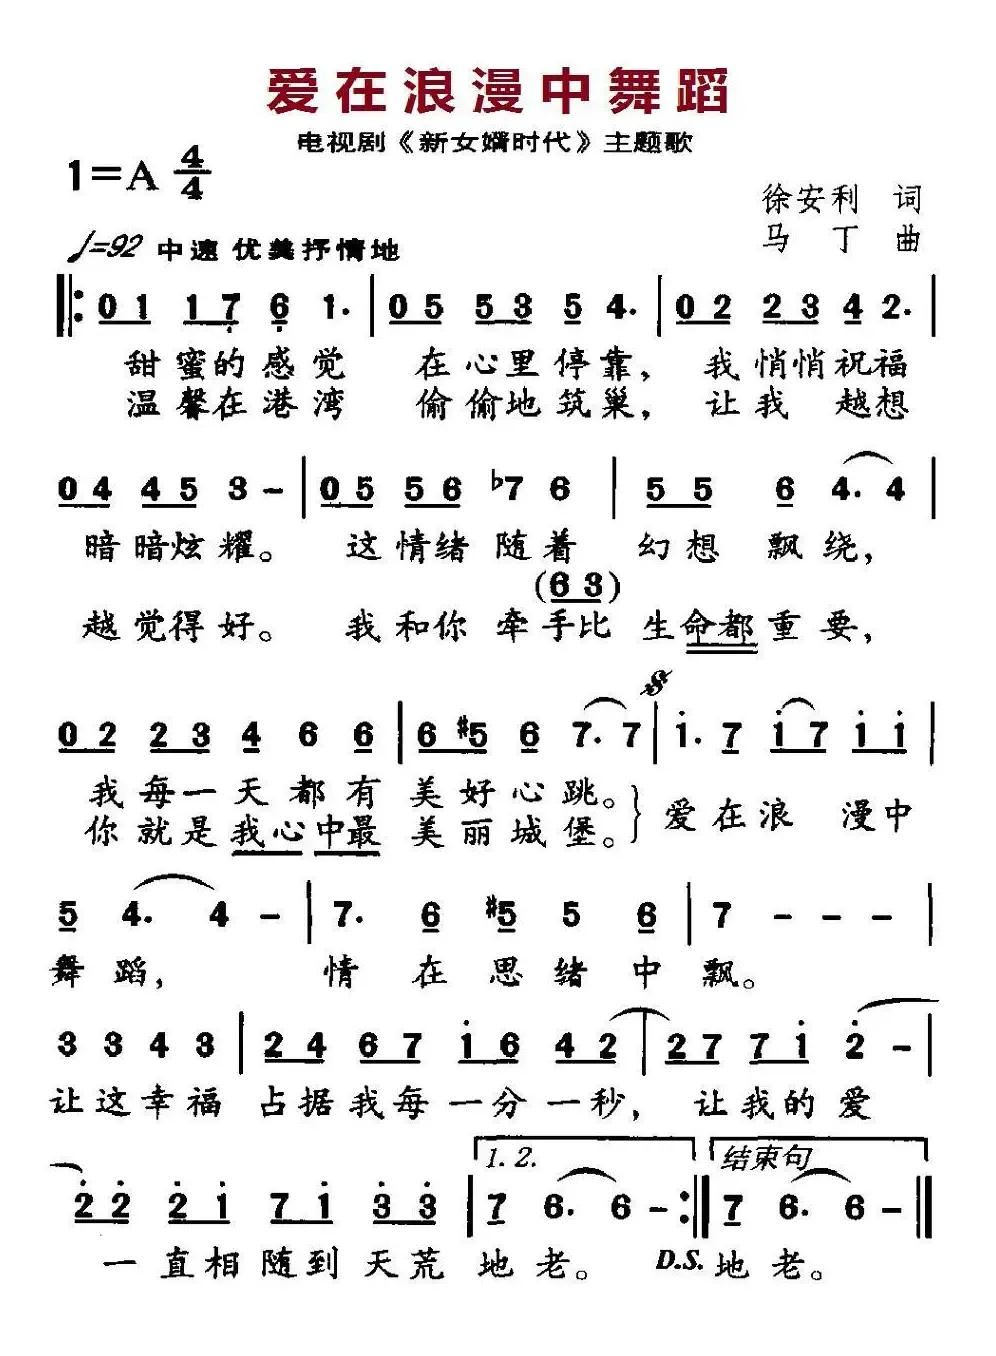 爱在浪漫中舞蹈
电视剧《新女婿时代》主题歌
1=A 4/4
徐安利 词
♩=92 中速 优美抒情地
马丁 曲
0 1 1 7 6 1. | 0 5 5 3 5 4. | 0 2 2 3 4 2. |
甜蜜的感觉 在心里停靠，我悄悄祝福
温馨在港湾 偷偷地筑巢，让我 越想
0 4 4 5 3 - | 0 5 5 6 ♭7 6 | 5 5 6 4. 4 |
暗暗炫耀。 这情绪随着 幻想 飘绕，
(6 3)
越觉得好。 我和你 牵手比 生命都重要，
0 2 2 3 4 6 6 | 6 #5 6 7. 7 | 1. 7 1 7 1 1 |
我每一天都有 美好心跳。
你就是我心中最 美丽城堡。} 爱在浪 漫中
5 4. 4 - | 7. 6 #5 5 6 | 7 - - - |
舞蹈， 情 在思绪中飘。
3 3 4 3 | 2 4 6 7 1 6 4 2 | 2 7 7 1 2 - |
让这幸福 占据我每一分一秒， 让我的爱
1. 2. 结束句
2 2 2 1 7 1 3 3 | 7 6. 6 - :| 7 6. 6 - ||
一直相随到天荒 地老。 D.S. 地老。